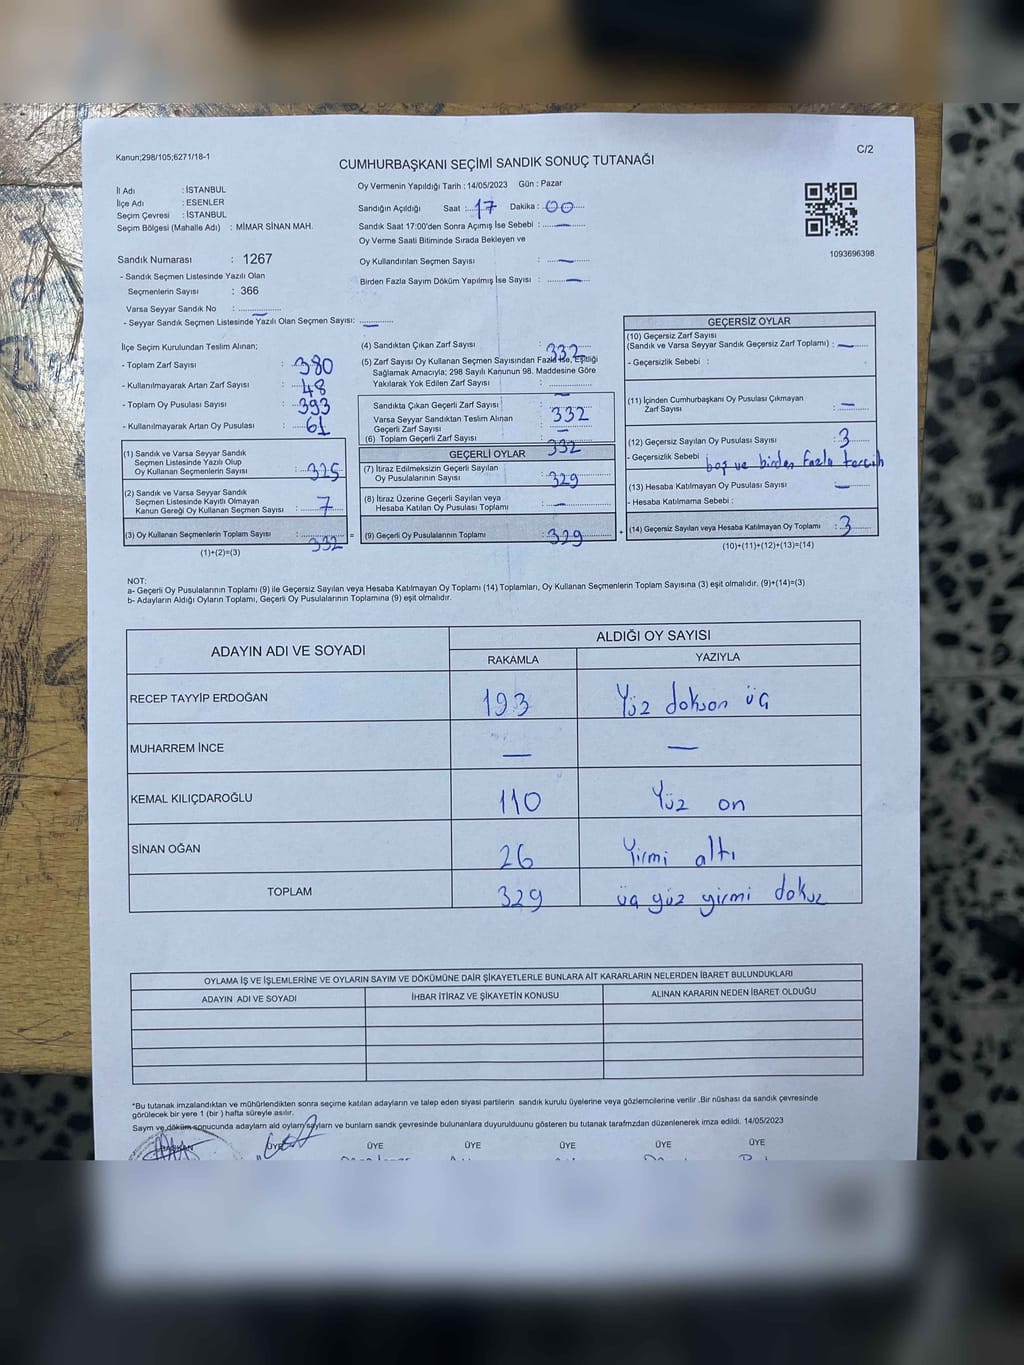 Kanun;298/105;6271/18-1
C/2
CUMHURBAŞKANI SEÇİMİ SANDIK SONUÇ TUTANAĞI
İl Adı : İSTANBUL
İlçe Adı : ESENLER
Seçim Çevresi : İSTANBUL
Seçim Bölgesi (Mahalle Adı) : MİMAR SİNAN MAH.
Oy Vermenin Yapıldığı Tarih : 14/05/2023 Gün : Pazar
Sandığın Açıldığı Saat : 17 Dakika : 00
Sandık Saat 17:00'den Sonra Açımış İse Sebebi : —
Oy Verme Saati Bitiminde Sırada Bekleyen ve
Oy Kullandırılan Seçmen Sayısı : —
Birden Fazla Sayım Döküm Yapılmış İse Sayısı : —
1093696398
Sandık Numarası : 1267
- Sandık Seçmen Listesinde Yazılı Olan
Seçmenlerin Sayısı : 366
Varsa Seyyar Sandık No : —
- Seyyar Sandık Seçmen Listesinde Yazılı Olan Seçmen Sayısı: —
İlçe Seçim Kurulundan Teslim Alınan;
- Toplam Zarf Sayısı : 380
- Kullanılmayarak Artan Zarf Sayısı : 48
- Toplam Oy Pusulası Sayısı : 393
- Kullanılmayarak Artan Oy Pusulası : 61
(1) Sandık ve Varsa Seyyar Sandık
Seçmen Listesinde Yazılı Olup
Oy Kullanan Seçmenlerin Sayısı : 325
(2) Sandık ve Varsa Seyyar Sandık
Seçmen Listesinde Kayıtlı Olmayan
Kanun Gereği Oy Kullanan Seçmen Sayısı : 7
(3) Oy Kullanan Seçmenlerin Toplam Sayısı : 332 =
(1)+(2)=(3)
(4) Sandıktan Çıkan Zarf Sayısı : 332
(5) Zarf Sayısı Oy Kullanan Seçmen Sayısından Fazla İse, Eşitliği
Sağlamak Amacıyla; 298 Sayılı Kanunun 98. Maddesine Göre
Yakılarak Yok Edilen Zarf Sayısı : —
Sandıkta Çıkan Geçerli Zarf Sayısı : 332
Varsa Seyyar Sandıktan Teslim Alınan
Geçerli Zarf Sayısı : —
(6) Toplam Geçerli Zarf Sayısı : 332
GEÇERLİ OYLAR
(7) İtiraz Edilmeksizin Geçerli Sayılan
Oy Pusulalarının Sayısı : 329
(8) İtiraz Üzerine Geçerli Sayılan veya
Hesaba Katılan Oy Pusulası Toplamı : —
(9) Geçerli Oy Pusulalarının Toplamı : 329 +
GEÇERSİZ OYLAR
(10) Geçersiz Zarf Sayısı
(Sandık ve Varsa Seyyar Sandık Geçersiz Zarf Toplamı) : —
- Geçersizlik Sebebi :
(11) İçinden Cumhurbaşkanı Oy Pusulası Çıkmayan
Zarf Sayısı : —
(12) Geçersiz Sayılan Oy Pusulası Sayısı : 3
- Geçersizlik Sebebi : boş ve birden fazla tercih
(13) Hesaba Katılmayan Oy Pusulası Sayısı : —
- Hesaba Katılmama Sebebi :
(14) Geçersiz Sayılan veya Hesaba Katılmayan Oy Toplamı : 3
(10)+(11)+(12)+(13)=(14)
NOT:
a- Geçerli Oy Pusulalarının Toplamı (9) ile Geçersiz Sayılan veya Hesaba Katılmayan Oy Toplamı (14) Toplamları, Oy Kullanan Seçmenlerin Toplam Sayısına (3) eşit olmalıdır. (9)+(14)=(3)
b- Adayların Aldığı Oyların Toplamı, Geçerli Oy Pusulalarının Toplamına (9) eşit olmalıdır.
ADAYIN ADI VE SOYADI
ALDIĞI OY SAYISI
RAKAMLA YAZIYLA
RECEP TAYYİP ERDOĞAN 193 Yüz dokson üç
MUHARREM İNCE — —
KEMAL KILIÇDAROĞLU 110 Yüz on
SİNAN OĞAN 26 Yirmi altı
TOPLAM 329 üç yüz yirmi dokuz
OYLAMA İŞ VE İŞLEMLERİNE VE OYLARIN SAYIM VE DÖKÜMÜNE DAİR ŞİKAYETLERLE BUNLARA AİT KARARLARIN NELERDEN İBARET BULUNDUKLARI
ADAYIN ADI VE SOYADI İHBAR İTİRAZ VE ŞİKAYETİN KONUSU ALINAN KARARIN NEDEN İBARET OLDUĞU
*Bu tutanak imzalandıktan ve mühürlendikten sonra seçime katılan adayların ve talep eden siyasi partilerin sandık kurulu üyelerine veya gözlemcilerine verilir .Bir nüshası da sandık çevresinde
görülecek bir yere 1 (bir ) hafta süreyle asılır.
Sayım ve döküm sonucunda adayların aldığı oylar sayılarn ve bunlarn sandık çevresinde bulunanlara duyurulduunu gösteren bu tutanak tarafımzdan düzenlenerek imza edildi. 14/05/2023
BAŞKAN ÜYE ÜYE ÜYE ÜYE ÜYE ÜYE